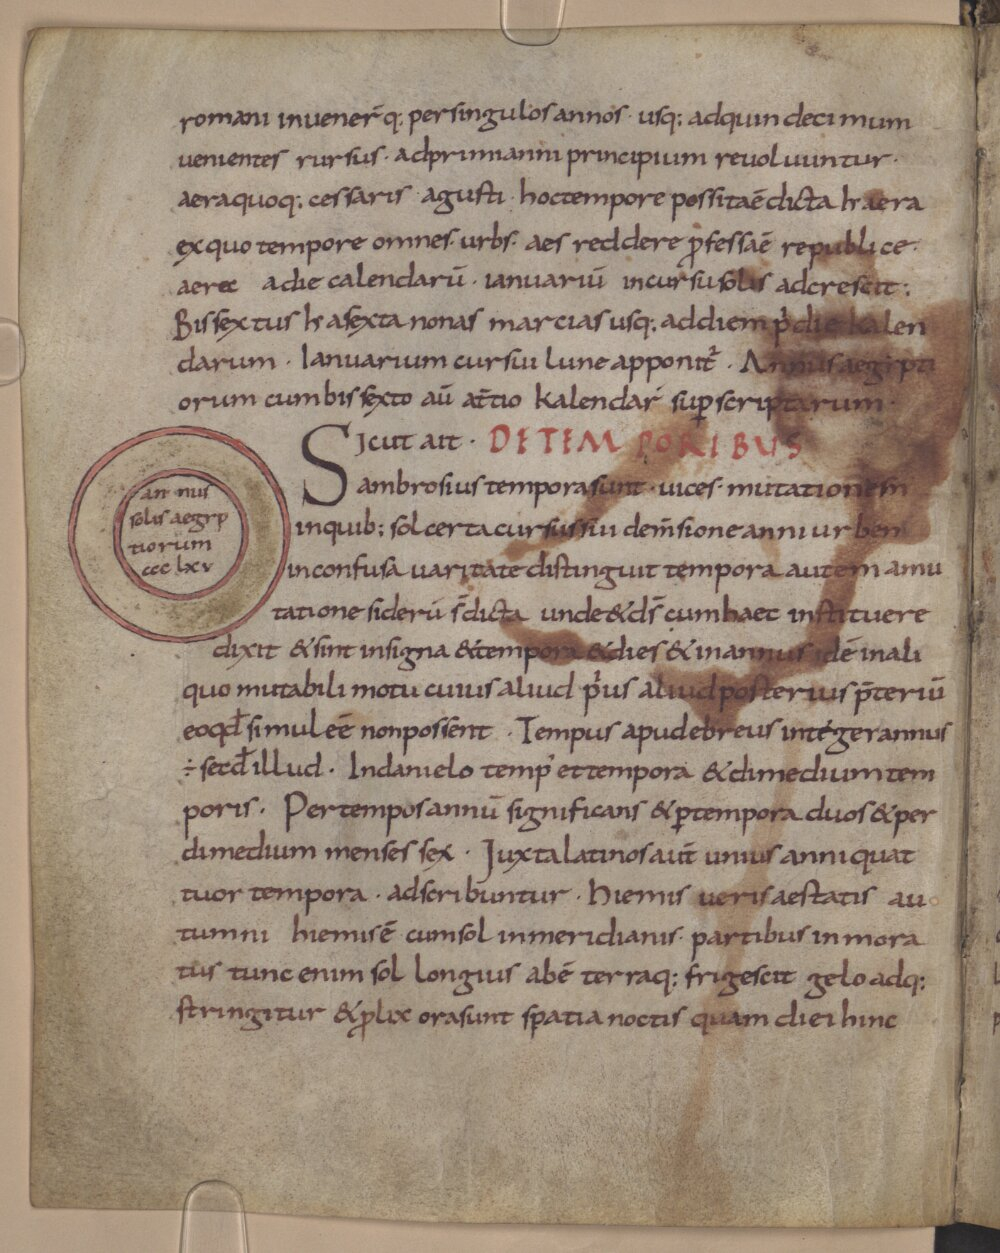 romani inuener̄q; persingulosannos · usq; adquindecimum
uenientes rursus · adprimianni principium reuoluuntur ·
aeraquoq; cessaris · agusti · hoctempore possitaē dicta haera
exquo tempore omnes · urbs · aes reddere p̄fessaē republice ·
aerec adie calendarū · ianuariū incursusolis adcrescit ;
Bissextus hasexta nonas marcias usq; addiem p̄die kalen
darum · Ianuarium cursui lune apponit᷑ · Annus aegipti
orum cumbissexto aū at̄tio kalendar̄ suꝑscriptarum ·
Sicut ait · DE TEMPORIBUS
an nus
solis aegip
tiorum
ccc lxv
ambrosius temporasunt · uices · mutationem
inquib; sol certacursussiui dem̄sione anni urbem
inconfusa uaritate distinguit tempora autem amu
tatione siderū s̄dicta unde &ds̄ cumhaec instituere
dixit &sint insigna &tempora &dies &inannus idē inali
quo mutabili motu cuius aliud p̄ius aliudposterius p̄teriū
eoqđ simul eē nonpossent · Tempus apudebreus integerannus
÷ setđ illud · Indanielo temp̄ ettempora &dimediumtem
poris · Pertempos annū significans &ꝑtempora duos &per
dimedium menses sex · Juxtalatinos aut̄ unius anniquat
tuor tempora · adscribuntur · hiemis ueris aestatis au
tumni hiemisē cumsol inmeridianis · partibus inmora
tus tunc enim sol longius abē terraq; frigescit gelo adq;
stringitur &ꝓlix orasunt spatia noctis quam diei hinc